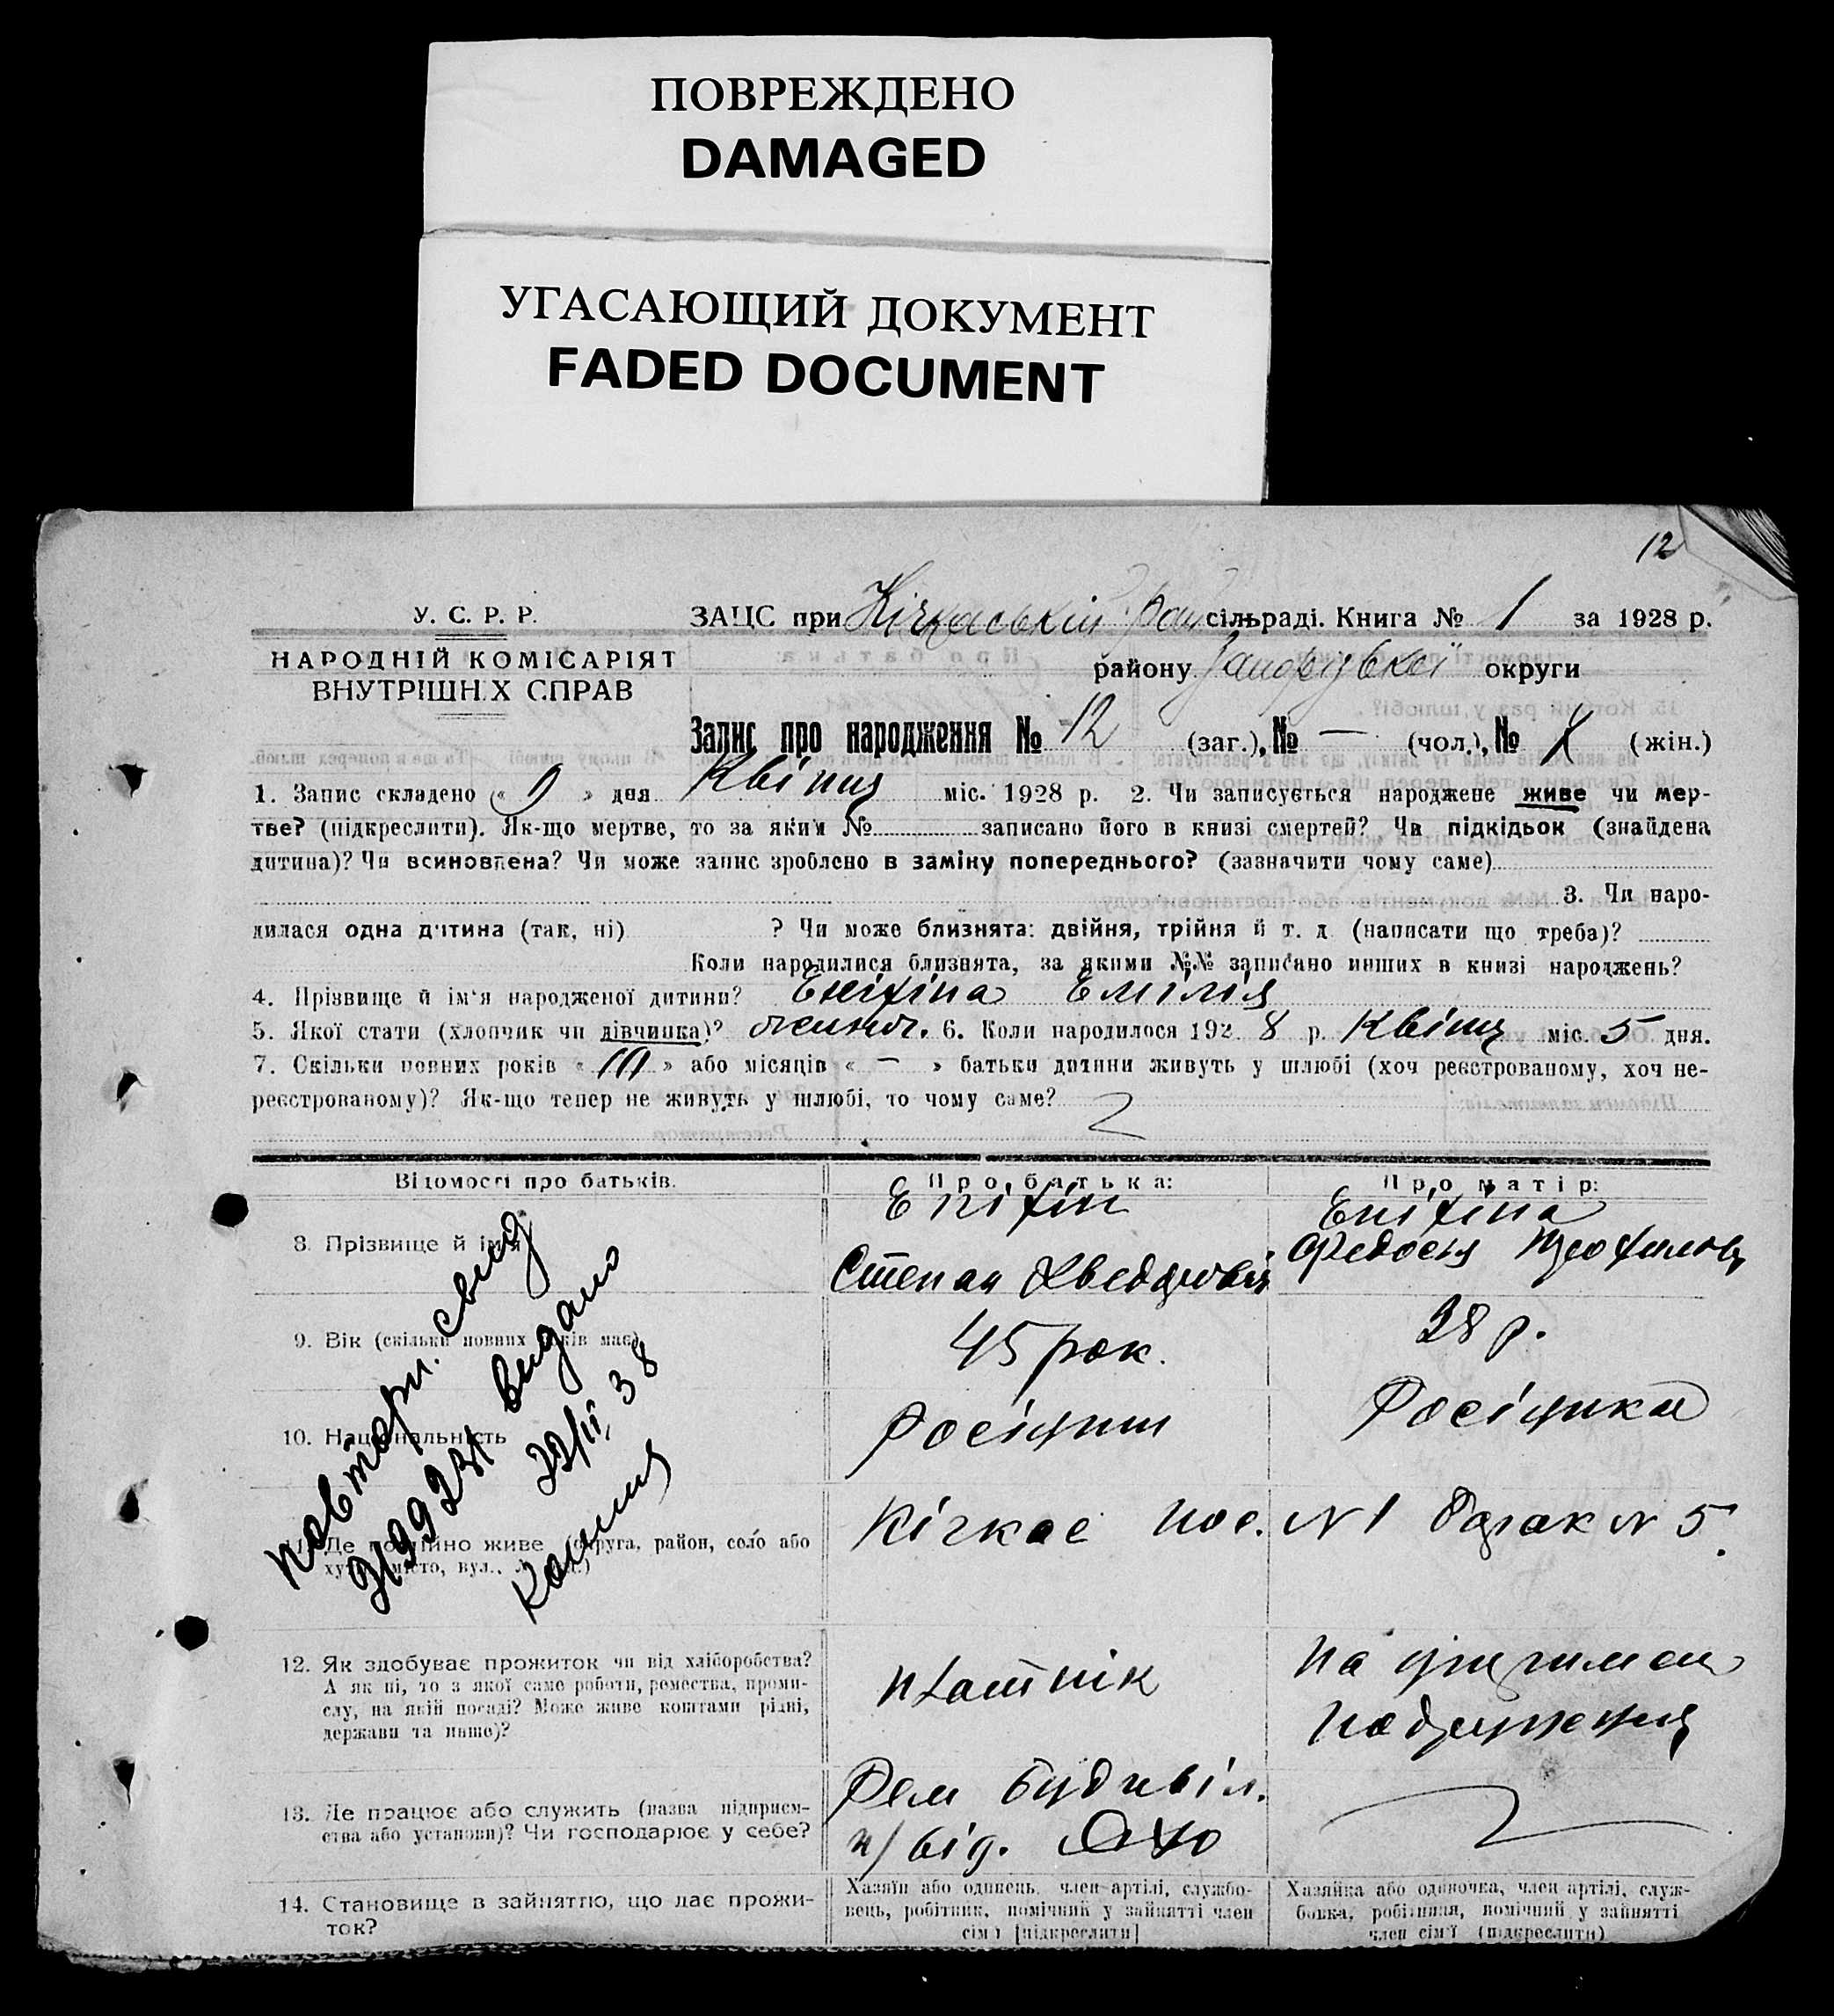 ПОВРЕЖДЕНО
DAMAGED
УГАСАЮЩИЙ ДОКУМЕНТ
FADED DOCUMENT
12
У. С. Р. Р.
НАРОДНІЙ КОМІСАРІЯТ
ВНУТРІШНІХ СПРАВ
ЗАЦС при Кічкаській сільраді. Книга № 1 за 1928 р.
району округи
Запис про народження № 12 (заг.), № — (чол.), № (жін.)
1. Запис складено « 9 » дня Квітня міс. 1928 р. 2. Чи записується народжене живе чи мер-
тве? (підкреслити). Як-що мертве, то за яким № записано його в книзі смертей? Чи підкідьок (знайдена
дитина)? Чи всиновлена? Чи може запис зроблено в заміну попереднього? (зазначити чому саме)
3. Чи наро-
дилася одна дитина (так, ні) ? Чи може близнята: двійня, трійня й т. д. (написати що треба)?
Коли народилися близнята, за якими №№ записано инших в книзі народжень?
4. Прізвище й ім'я народженої дитини? Епіфіна Емілія
5. Якої стати (хлопчик чи дівчинка)? 6. Коли народилося 192 8 р. Квітня міс. 5 дня.
7. Скільки повних років « » або місяців « — » батьки дитини живуть у шлюбі (хоч реєстрованому, хоч не-
реєстрованому)? Як-що тепер не живуть у шлюбі, то чому саме?
Відомості про батьків.
Про батька:
Про матір:
8. Прізвище й ім'я
Епіфін
Степан
Епіфіна
Федосья
9. Вік (скільки повних років має)
45 рок.
38 р.
10. Національність
Росіянин
Росіянка
11. Де постійно живе (округа, район, село або
хутір, місто, вул.,
Кічкас пос. № 1 барак № 5.
12. Як здобуває прожиток чи від хліборобства?
А як ні, то з якої саме роботи, ремества, проми-
слу, на якій посаді? Може живе коштами рідні,
держави та инше)?
плотнік
На
13. Де працює або служить (назва підприєм-
ства або установи)? Чи господарює у себе?
Рем будивіл.
п/від.
14. Становище в зайнятто, що дає прожи-
ток?
Хазяїн або одинець, член артілі, службо-
вець, робітник, помічний у зайнятті член
сім'ї [підкреслити]
Хазяйка або одиночка, член артілі, служ-
бовка, робітниця, помічний у зайнятті
член сім'ї (підкреслити)
повторн. свид
видано
22/II 38